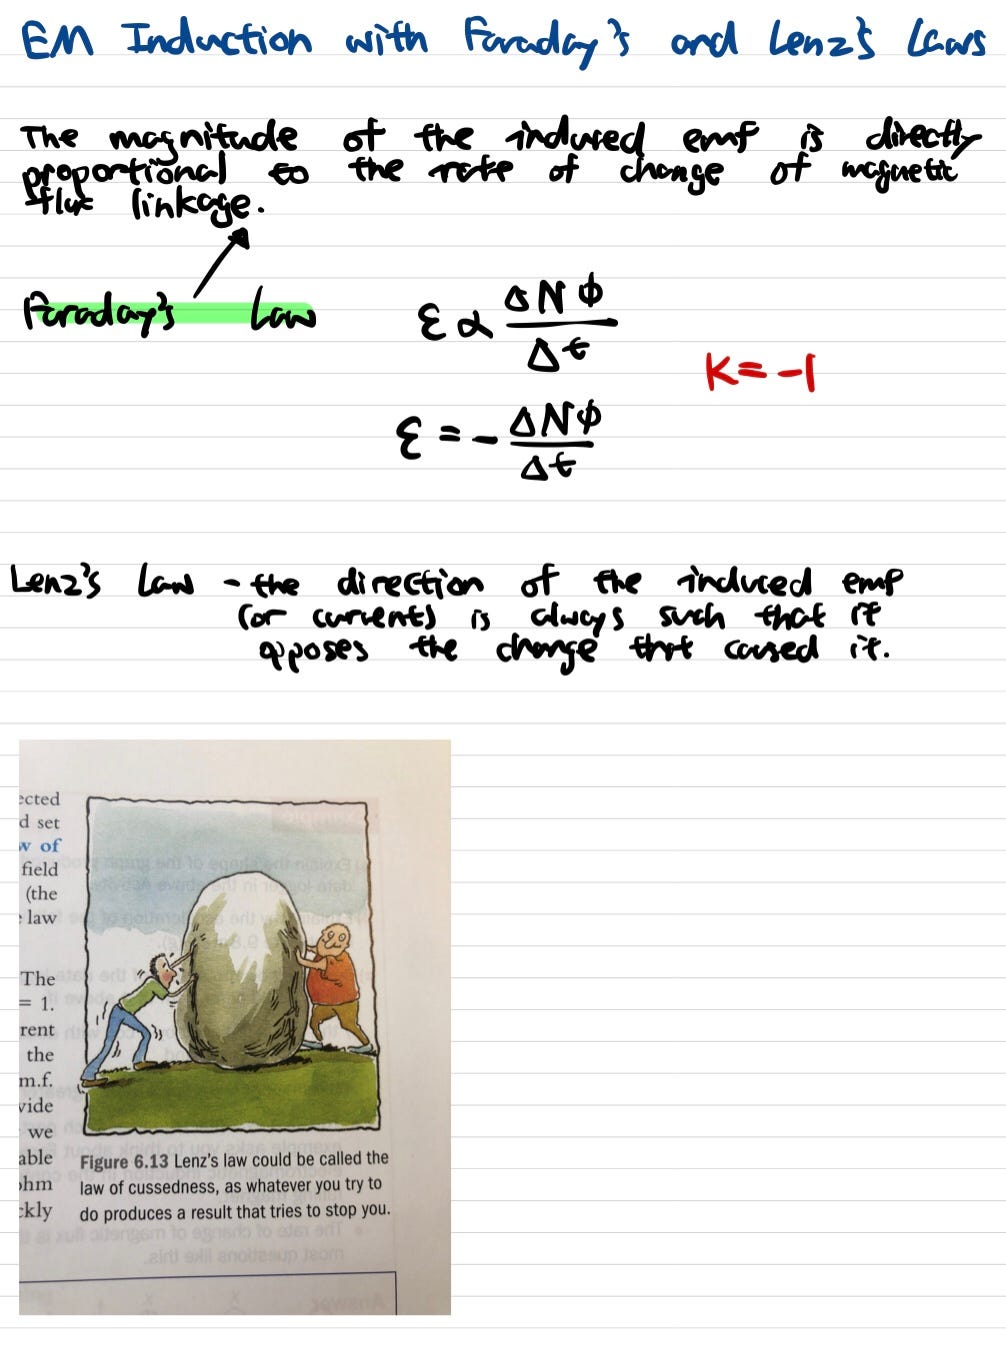 EM Induction with Faraday's and Lenz's Laws
The magnitude of the induced emf is directly
proportional to the rate of change of magnetic
flux linkage.
Faraday's Law
ε ∝ ΔNΦ
Δt
K = -1
ε = - ΔNΦ
Δt
Lenz's Law - the direction of the induced emf
(or current) is always such that it
opposes the change that caused it.
ected
d set
w of
field
(the
law
The
= 1.
rent
the
m.f.
vide
we
able
ohm
ckly
Figure 6.13 Lenz's law could be called the
law of cussedness, as whatever you try to
do produces a result that tries to stop you.